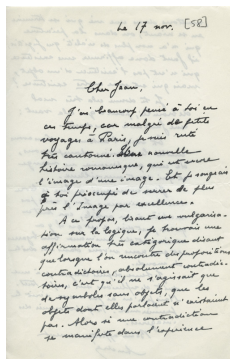 Le 17 nov. [58]
Cher Jean,
J'ai beaucoup pensé à toi en
ces temps, car malgré de petits
voyages à Paris, je suis resté
très cantonné. Une nouvelle
histoire romanesque, qui est encore
l'image d'une image. Et je songeais
à toi préoccupé de serrer de plus
près l'Image par excellence.
A ce propos, lisant un vulgarisa-
tion sur la logique, je trouvais une
affirmation très catégorique disant
que lorsque l'on rencontre des propositions
contradictoires, absolument contradic-
toires, c'est qu'il ne s'agissait que
de symboles sans objets, que les
objets dont elles parlaient n'existaient
pas. Alors si une contradiction
se manifeste dans l'expérience